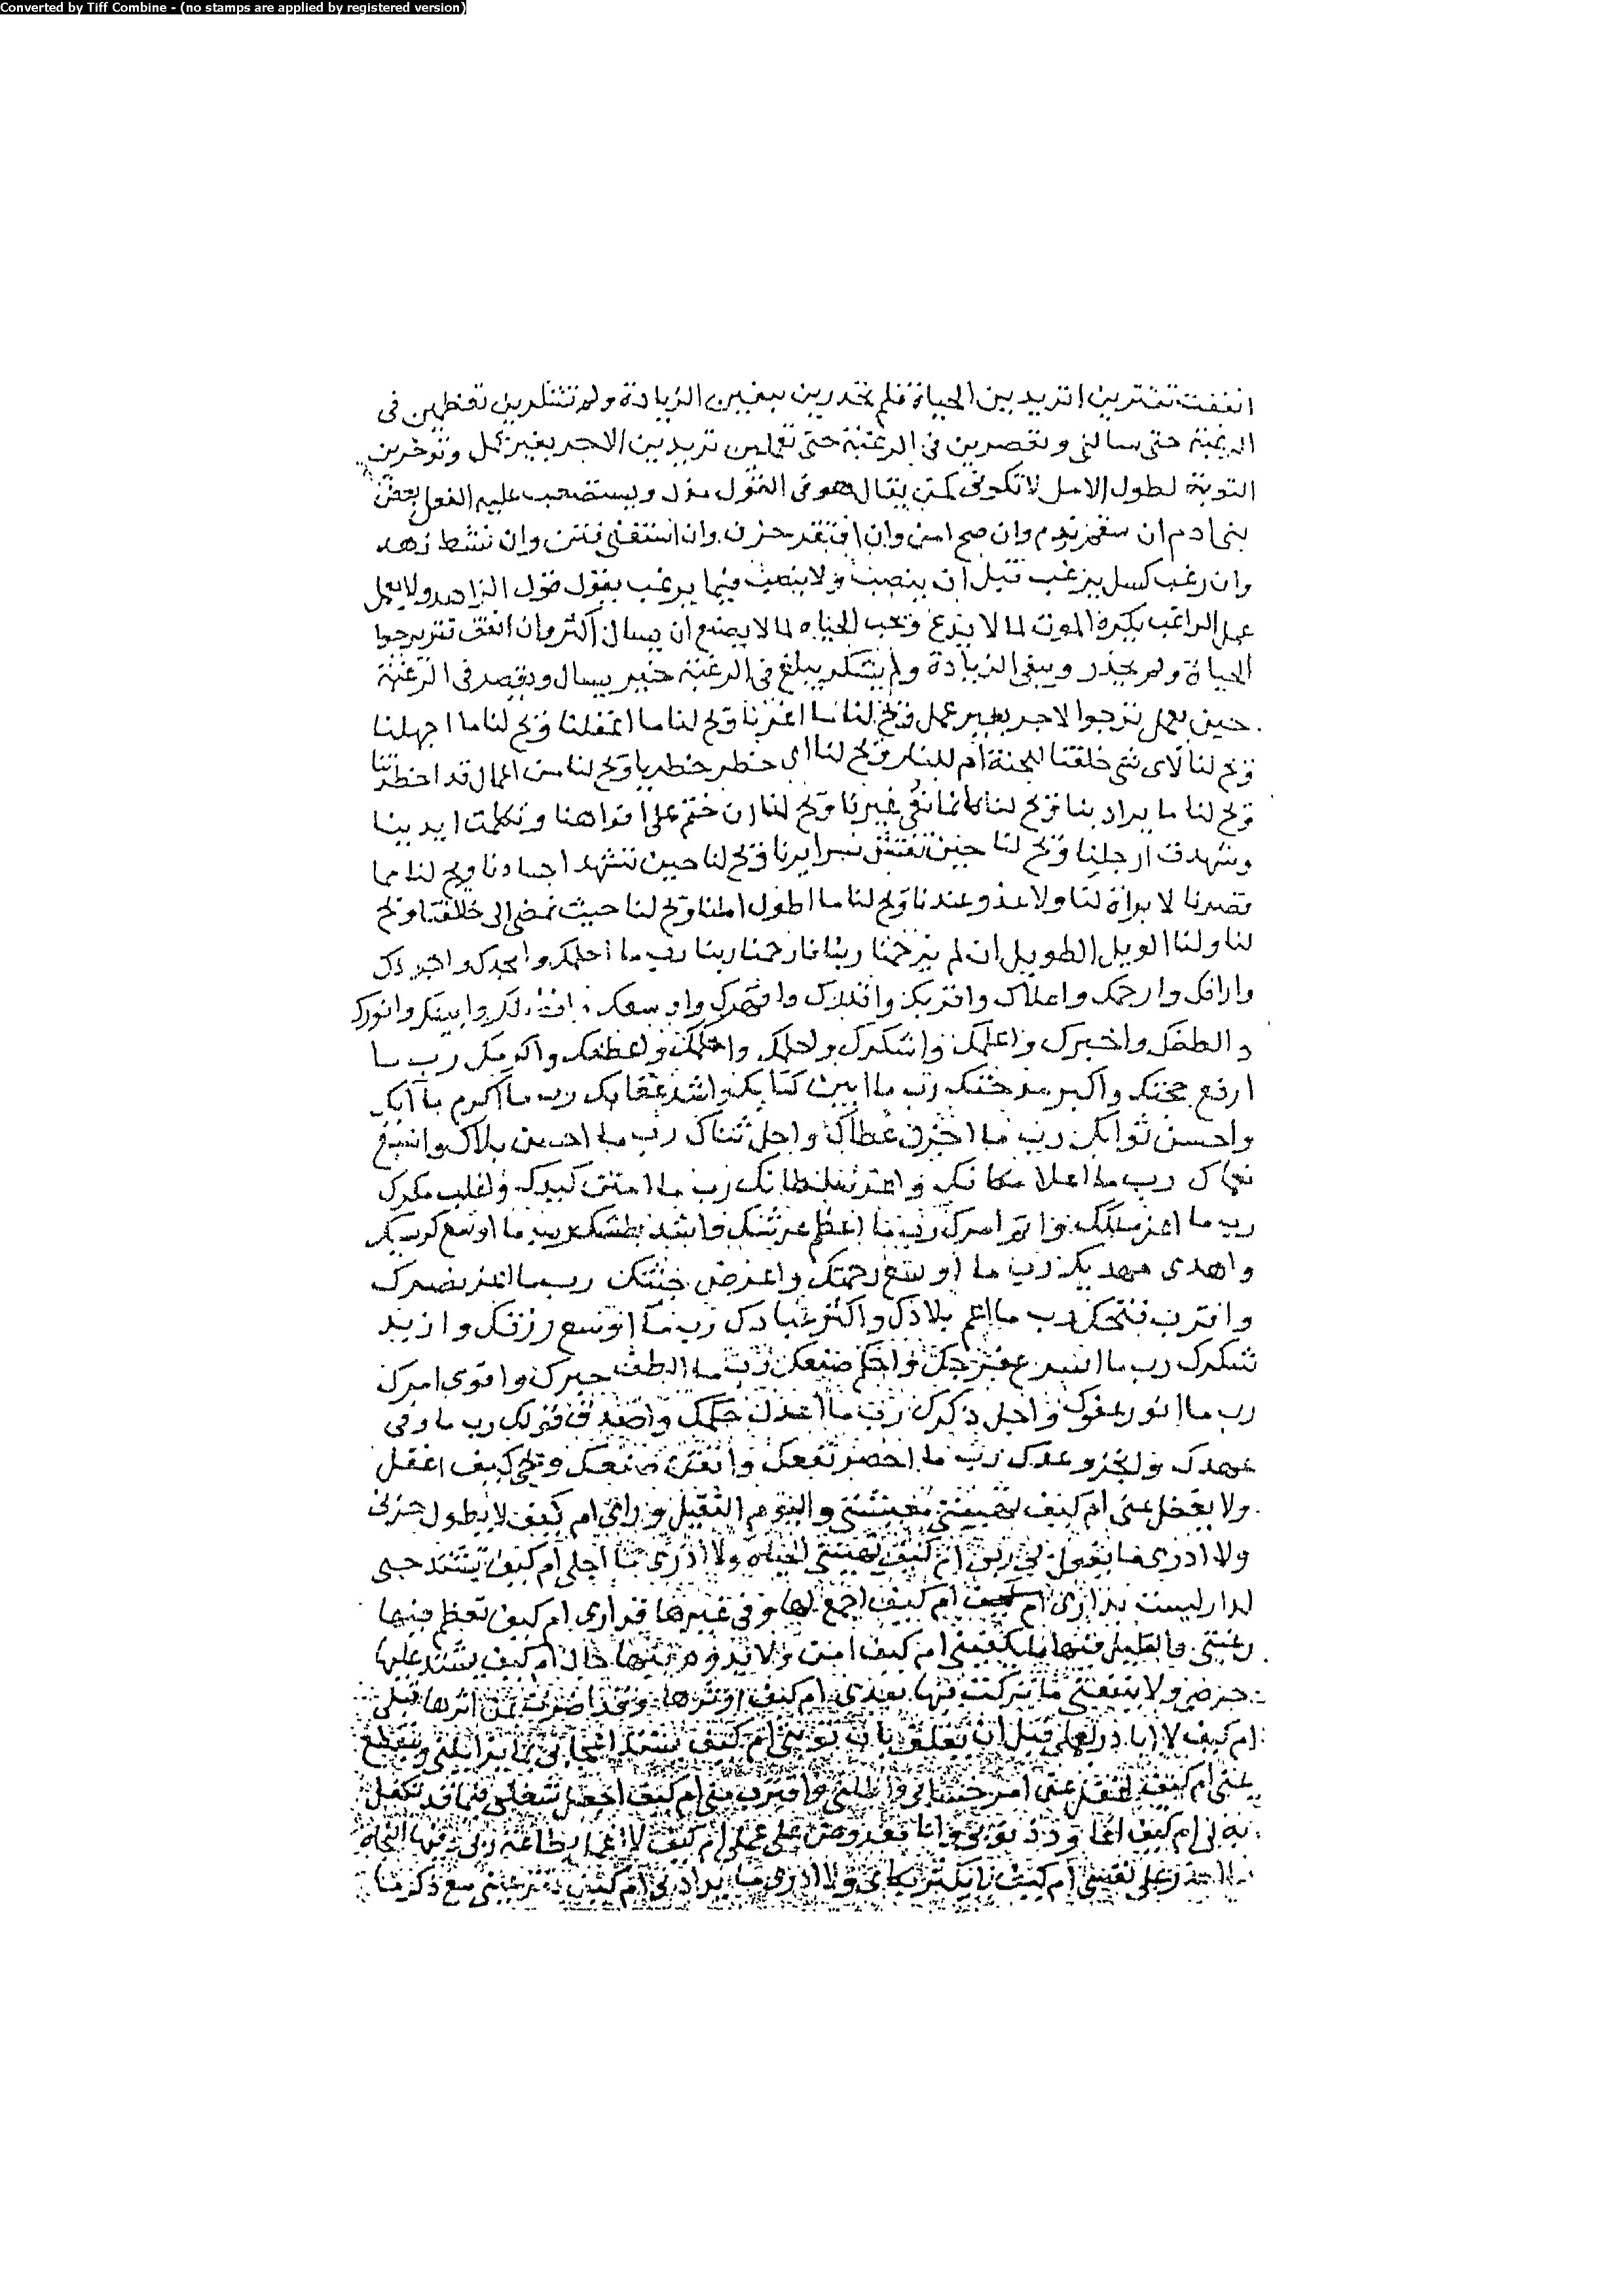 Converted by Tiff Combine - (no stamps are applied by registered version)
انفقت تقترين اتريدين الحياة فلم تحذرين تبغين الزيادة ولم تشكرين تعظمين فى
الرغبة حتى سالتى وتقصرين فى الرغبة حتى تعملين تريدين الاجر بغير عمل وتوخرين
التوبة لطول الامل لا تكونى كمن يقال هو فى القول مدل ويستصعب عليه الفعل بعض
بنى ادم ان سقم ندم وان صح امن وان افتقر حزن وان استغنى فتن وان نشط زهد
وان رغب كسل يرغب قبل ان ينصب ولا ينصب فيما يرغب يقول قول الزاهد ولا يعمل
عمل الراغب يكره الموت لما لا يدع ويحب الحياه لما لا يصنع ان يسال اكثر وان انفق قتر يرجوا
الحياة ولم يحذر ويبغى الزيادة ولم يشكر يبلغ فى الرغبة حين يسال ويقصر فى الرغبة
حين يعمل يرجوا الاجر بغير عمل ويح لنا ما اغرنا ويح لنا ما اغفلنا ويح لنا ما اجهلنا
ويح لنا لاى شى خلقنا للجنة ام للنار ويح لنا اى خطر خطرنا ويح لنا من اعمال قد اخطرتنا
ويح لنا ما يراد بنا ويح لنا كانما يعنى غيرنا ويح لنا ان ختم على افواهنا وتكلمت ايدينا
وشهدت ارجلنا ويح لنا حين تفتش سرايرنا ويح لنا حين تشهد اجسادنا ويح لنا مما
قصرنا لا براة لنا ولا عذر عندنا ويح لنا ما اطول املنا ويح لنا حيث نمضى الى خالقنا ويح
لنا ولنا الويل الطويل ان لم يرحمنا ربنا فارحمنا ربنا رب ما احلمك وامجدك واجودك
وارافك وارحمك واعلاك واقربك واقدرك واقهرك واوسعك وابينك وانورك
والطفك واخبرك واعلمك واشكرك واحلمك واحكمك واعطفك واكرمك رب ما
ارفع حجتك واكثر مدحتك رب ما ابين كتابك واشد عقابك رب ما اكرم مابك
واحسن ثوابك رب ما اجزل عطاك واجل ثناك رب ما احسن بلاك واسبغ
نعماك رب ما اعلا مكانك واعز سلطانك رب ما امتن كيدك واغلب مكرك
رب ما اعز ملكك واتم امرك رب ما اعظم عرشك واشد بطشك رب ما اوسع كرسيك
واهدى مهديك رب ما اوسع رحمتك واعرض جنتك رب ما اعز نصرك
واقرب فتحك رب ما اعم بلادك واكثر عبادك رب ما اوسع رزقك وازيد
شكرك رب ما اسرع فرجك واحكم صنعك رب ما الطف خيرك واقوى امرك
رب ما انور عفوك واجل ذكرك رب ما اعدل حكمك واصدق قولك رب ما اوفى
عهدك وانجز وعدك رب ما احضر نفعك واتقن صنعك ويحى كيف اغفل
ولا يغفل عنى ام كيف تهنينى معيشتى واليوم الثقيل وراى ام كيف لا يطول حزنى
ولا ادرى ما يفعل بى ربى ام كيف تهنينى الحياه ولا ادرى ما اجلى ام كيف يشتد حبى
لدار ليست بدارى ام كيف ام كيف اجمع لها وفى غيرها قرارى ام كيف تعظم فيها
رغبتى والقليل منها يكفينى ام كيف امنت ولا يدوم فيها حال ام كيف يشتد عليها
حرصى ولا ينفعنى ما تركت فيها بعدى ام كيف اوثرها وقد اضرت بمن اثرها قبلى
ام كيف لا ابادر بعملى قبل ان يغلق باب توبتى ام كيف يشتد اعجابى بما يزايلنى وينقطع
عنى ام كيف اغفل عن امر حسابى واظلنى واقترب منى ام كيف اجعل شغلى فيما قد تكفل
به لى ام كيف اعاود ذنوبى وانا معروض على عملى ام كيف لا اعمل بطاعة ربى وفيها النجاه
على نفسى ام كيف لا يكثر بكاى ولا ادرى ما يراد بى ام كيف تقر عينى مع ذكر ما